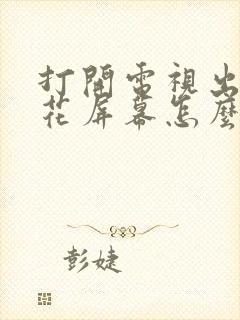 打開電視出
花屏幕怎麼
彭婕